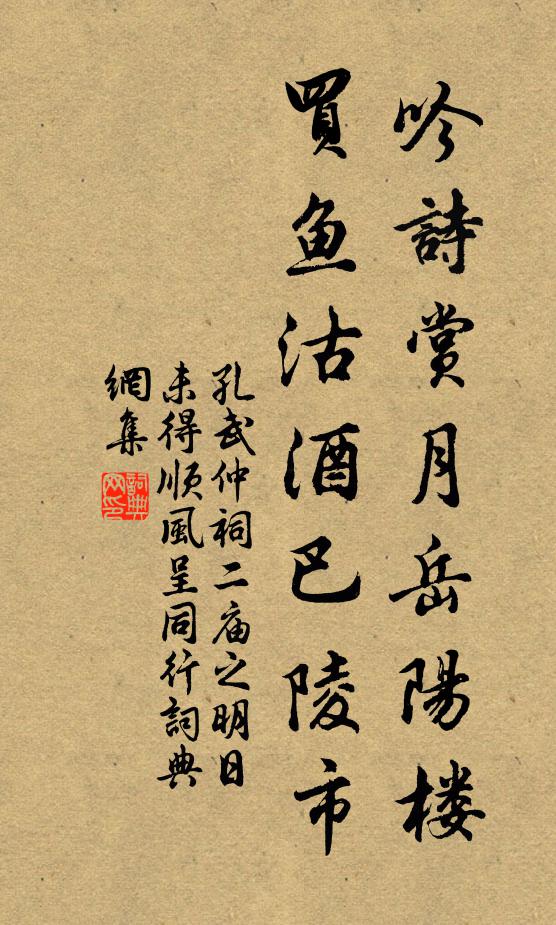 吟詩賞月岳陽楼
買鱼沽酒巴陵市
孔武仲祠二庙之明日
未得順風呈同行詞典
網集
詞典
网印